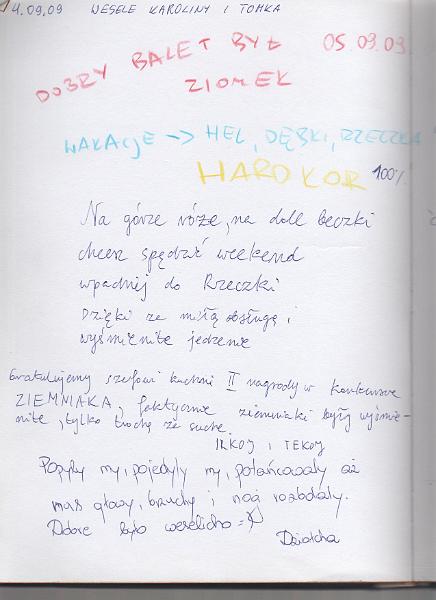 14.09.09 WESELE KAROLINY I TOMKA
DOBRY BALET BYŁ 05.09.09
ZIOMEK
WAKACJE -> HEL, DĘBKI, RZECZKA
HARDKOR 100%
Na górze róże, na dole beczki
chcesz spędzić weekend
wpadnij do Rzeczki
Dzięki za miłą obsługę i
wyśmienite jedzenie
Gratulujemy szefowi kuchni II nagrody w konkursie
ZIEMNIAKA, faktycznie ziemniaki były wyśmie-
nite, tylko trochę za suche.
IRKOJ i TEKOJ
Popyły my, pojedyły my, potańcowały aż
mas głowy, brzuchy i nogi rozbolały.
Dobre było weselicho =
Działcha